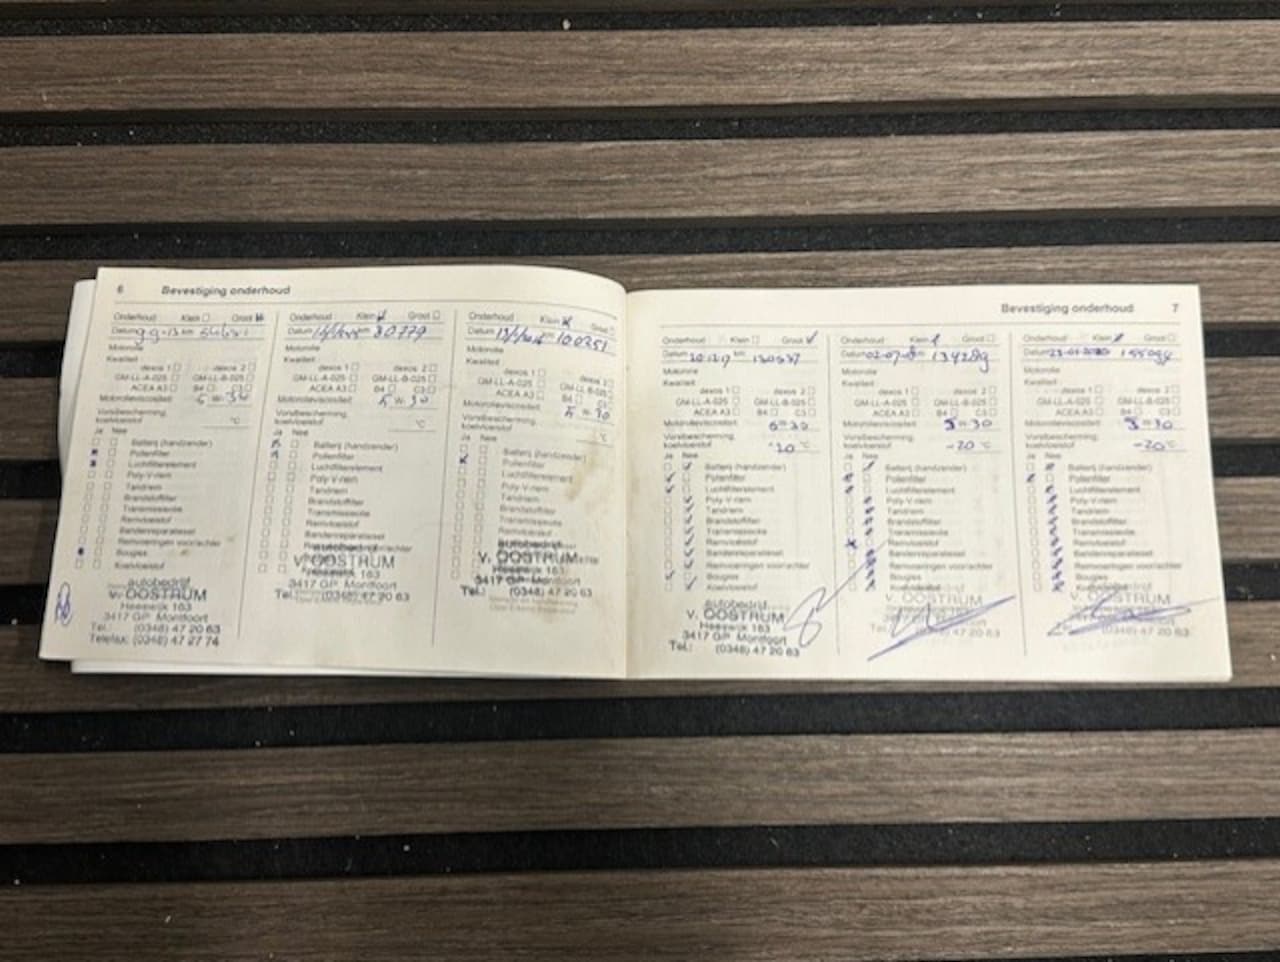 6 Bevestiging onderhoud
Onderhoud Klein Groot
Datum 9-9-13 km
Motorolie
Kwaliteit
dexos 1 dexos 2
GM-LL-A-025 GM-LL-B-025
ACEA A3 B4 C3
Motorolieviscositeit 5 w 30
Vorstbescherming
koelvloeistof °C
Ja Nee
Batterij (handzender)
Pollenfilter
Luchtfilterelement
Poly-V-riem
Tandriem
Brandstoffilter
Transmissieolie
Remvloeistof
Bandenreparatieset
Remvoeringen voor/achter
Bougies
Koelvloeistof
autobedrijf
v. OOSTRUM
Heeswijk 163
3417 GP Montfoort
Tel.: (0348) 47 20 63
Telefax: (0348) 47 27 74
Onderhoud Klein Groot
Datum km 80779
Motorolie
Kwaliteit
dexos 1 dexos 2
GM-LL-A-025 GM-LL-B-025
ACEA A3 B4 C3
Motorolieviscositeit 5 w 30
Vorstbescherming
koelvloeistof °C
Ja Nee
Batterij (handzender)
Pollenfilter
Luchtfilterelement
Poly-V-riem
Tandriem
Brandstoffilter
Transmissieolie
Remvloeistof
Bandenreparatieset
autobedrijf
v. OOSTRUM
Heeswijk 163
3417 GP Montfoort
Tel.: (0348) 47 20 63
Onderhoud Klein Groot
Datum km 100251
Motorolie
Kwaliteit
dexos 1 dexos 2
GM-LL-A-025 GM-LL-B-025
ACEA A3 B4 C3
Motorolieviscositeit 5 w 30
Vorstbescherming
koelvloeistof °C
Ja Nee
Batterij (handzender)
Pollenfilter
Luchtfilterelement
Poly-V-riem
Tandriem
Brandstoffilter
Transmissieolie
Remvloeistof
autobedrijf
v. OOSTRUM
Heeswijk 163
3417 GP Montfoort
Tel.: (0348) 47 20 63
Bevestiging onderhoud 7
Onderhoud Klein Groot
Datum km
Motorolie
Kwaliteit
dexos 1 dexos 2
GM-LL-A-025 GM-LL-B-025
ACEA A3 B4 C3
Motorolieviscositeit 5=30
Vorstbescherming
koelvloeistof °C
Ja Nee
Batterij (handzender)
Pollenfilter
Luchtfilterelement
Poly-V-riem
Tandriem
Brandstoffilter
Transmissieolie
Remvloeistof
Bandenreparatieset
Remvoeringen voor/achter
Bougies
Koelvloeistof
autobedrijf
v. OOSTRUM
Heeswijk 163
3417 GP Montfoort
Tel.: (0348) 47 20 63
Onderhoud Klein Groot
Datum 02-07-18 km 134289
Motorolie
Kwaliteit
dexos 1 dexos 2
GM-LL-A-025 GM-LL-B-025
ACEA A3 B4 C3
Motorolieviscositeit 5=30
Vorstbescherming
koelvloeistof -20 °C
Ja Nee
Batterij (handzender)
Pollenfilter
Luchtfilterelement
Poly-V-riem
Tandriem
Brandstoffilter
Transmissieolie
Remvloeistof
Bandenreparatieset
Remvoeringen voor/achter
Bougies
Koelvloeistof
v. OOSTRUM
Heeswijk 163
3417 GP Montfoort
(0348) 47 20 63
Onderhoud Klein Groot
Datum km
Motorolie
Kwaliteit
dexos 1 dexos 2
GM-LL-A-025 GM-LL-B-025
ACEA A3 B4 C3
Motorolieviscositeit 5=30
Vorstbescherming
koelvloeistof -20 °C
Ja Nee
Batterij (handzender)
Pollenfilter
Luchtfilterelement
Poly-V-riem
Tandriem
Brandstoffilter
Transmissieolie
Remvloeistof
Bandenreparatieset
Remvoeringen voor/achter
Bougies
v. OOSTRUM
Heeswijk 163
(0348) 47 20 63